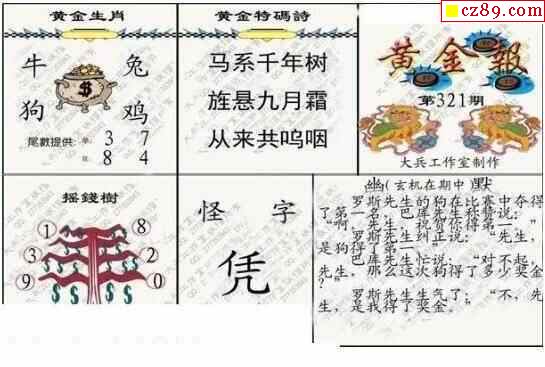 cz89.com
黄金生肖
牛 兔
狗 鸡
尾數提供: 單: 3 7
8 4
黄金特碼詩
马系千年树
旌悬九月霜
从来共呜咽
黄金報
第321期
大兵工作室制作
摇錢樹
1 8
3 2
9 0
怪 字
凭
幽(玄机在期中)默
罗斯先生的狗在比赛中夺得
了第一名，巴库先生称赞说：
“啊，先生，祝贺你得第一。”
罗斯先生纠正说：“先生，
是狗得了第一。”
巴库先生忙说：“对不起，
先生，那么这次狗得了多少奖金
？”
罗斯先生生气了：“不，先
生，是我得了奖金。”